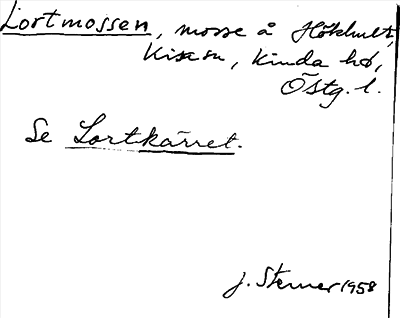 Lortmossen, mosse å Hökhult,
Kisa sn, Kinda hd,
Östg. l.
Se Lortkärret.
J. Sterner 1958